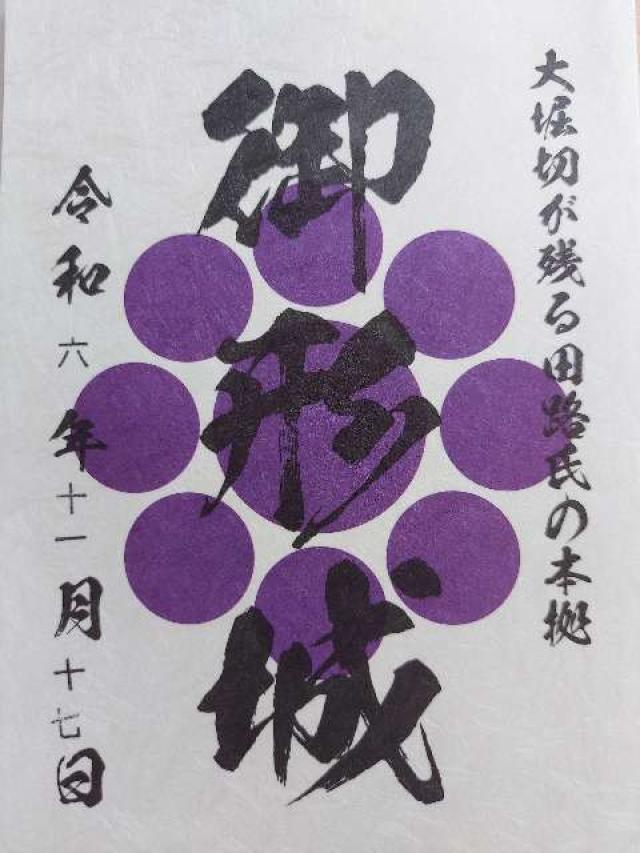 大堀切が残る田路氏の本拠
御形城
令和六年十一月十七日